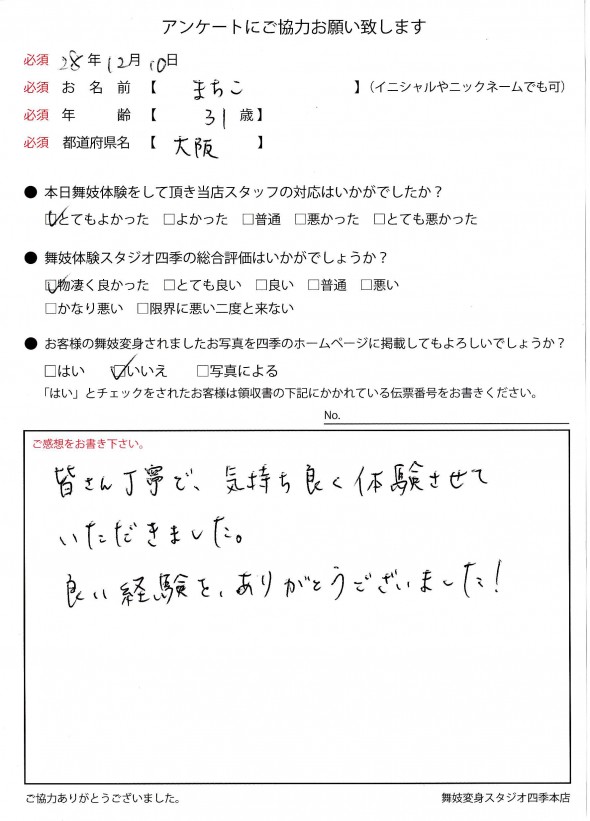 アンケートにご協力お願い致します
必須 28年12月10日
必須 お名前【 まちこ 】（イニシャルやニックネームでも可）
必須 年齢【 31歳】
必須 都道府県名【 大阪 】
● 本日舞妓体験をして頂き当店スタッフの対応はいかがでしたか？
☑とてもよかった □よかった □普通 □悪かった □とても悪かった
● 舞妓体験スタジオ四季の総合評価はいかがでしょうか？
☑物凄く良かった □とても良い □良い □普通 □悪い
□かなり悪い □限界に悪い二度と来ない
● お客様の舞妓変身されましたお写真を四季のホームページに掲載してもよろしいでしょうか？
□はい ☑いいえ □写真による
「はい」とチェックをされたお客様は領収書の下記にかかれている伝票番号をお書きください。
No.
ご感想をお書き下さい。
皆さん丁寧で、気持ち良く体験させて
いただきました。
良い経験を、ありがとうございました！
ご協力ありがとうございました。 舞妓変身スタジオ四季本店